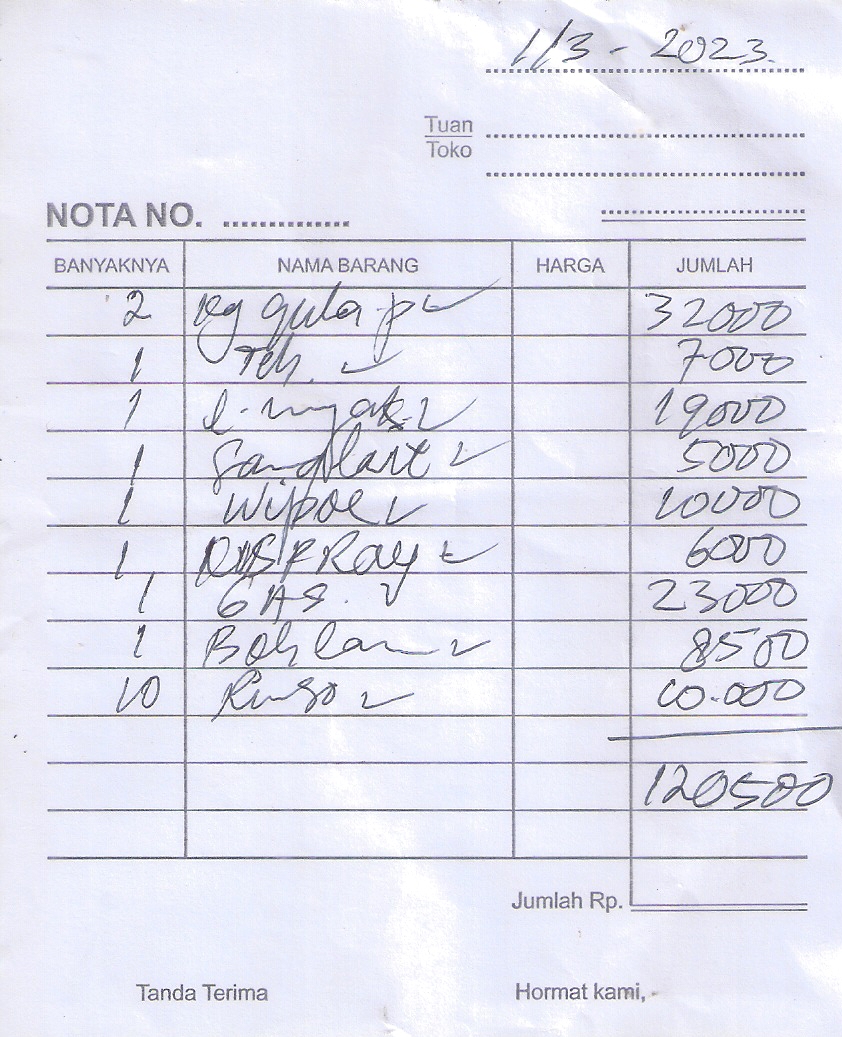 1/3 - 2023.
Tuan
Toko
NOTA NO. ..............
BANYAKNYA NAMA BARANG HARGA JUMLAH
2 kg gula p 32000
1 Teh. 7000
1 19000
1 Sunlait 5000
1 Wipol 10000
1, 6000
1 GAS. 23000
1 Bohlam 8500
10 Rinso 10.000
120500
Jumlah Rp.
Tanda Terima Hormat kami,